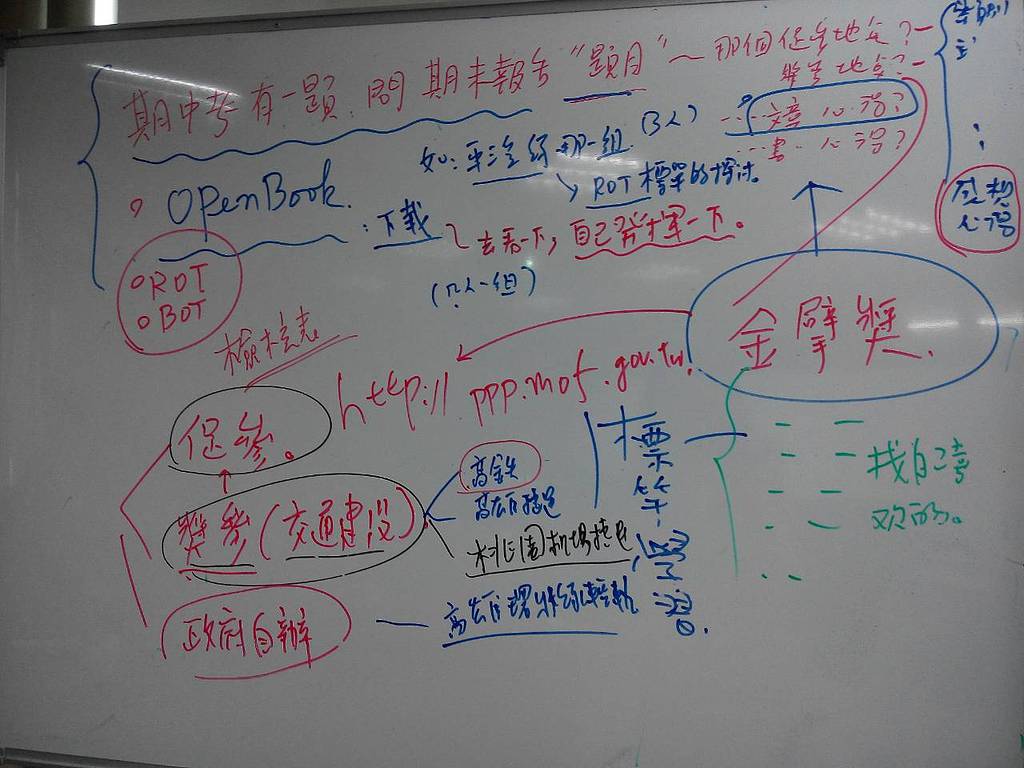 期中考有一題，問期末報告“題目”～那個促參地点？
OPenBook.
如：平冾经那一組.(3人)
ROT標單的探討。
：下載
去看一下，自己發揮一下。
(几人一組)
文章心得？
書 心得？
感想
心得
ROT
BOT
金擘獎.
檢核表
http://ppp.mof.gov.tw.
促參。
獎參(交通建設)
政府自辦
高鐵
高雄捷運
桃園機場捷運
高雄環狀線輕軌
標竿學習.
找自己喜
欢的。